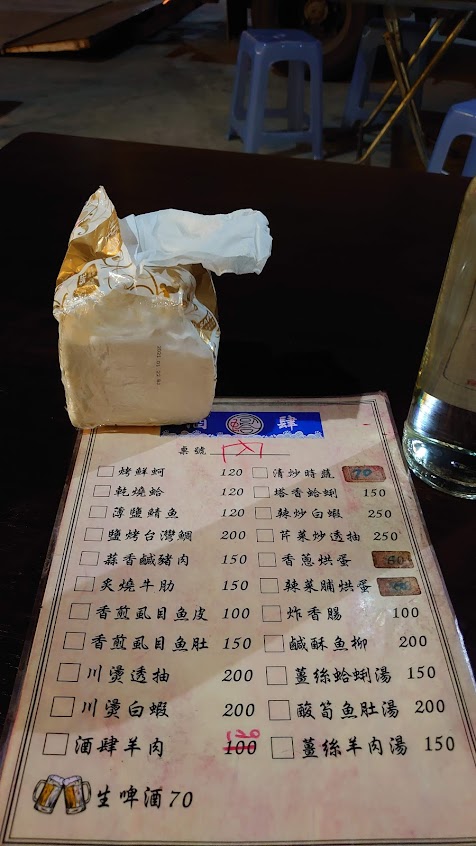 酒 肆
桌號
烤鮮蚵 120 清炒時蔬
乾燒蛤 120 塔香蛤蜊 150
薄鹽鯖魚 120 辣炒白蝦 250
鹽烤台灣鯛 200 芹菜炒透抽 250
蒜香鹹豬肉 150 香蔥烘蛋
炙燒牛肋 150 辣菜脯烘蛋
香煎虱目魚皮 100 炸香腸 100
香煎虱目魚肚 150 鹹酥魚柳 200
川燙透抽 200 薑絲蛤蜊湯 150
川燙白蝦 200 酸筍魚肚湯 200
酒肆羊肉 100 薑絲羊肉湯 150
生啤酒70